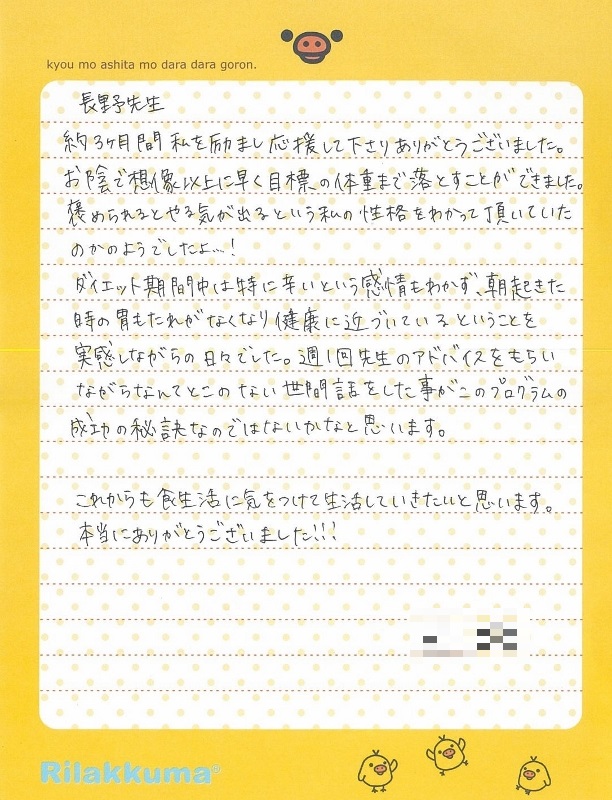 kyou mo ashita mo dara dara goron.
長野先生
約3ヶ月間 私を励まし応援して下さりありがとうございました。
お陰で想像以上に早く目標の体重まで落とすことができました。
褒められるとやる気が出るという私の性格をわかって頂いていた
のかのようでしたよ…!
ダイエット期間中は特に辛いという感情もわかず、朝起きた
時の胃もたれがなくなり健康に近づいているということを
実感しながらの日々でした。週1回先生のアドバイスをもらい
ながらなんてとこのない世間話をした事がこのプログラムの
成功の秘訣なのではないかなと思います。
これからも食生活に気をつけて生活していきたいと思います。
本当にありがとうございました!!!
Rilakkuma®